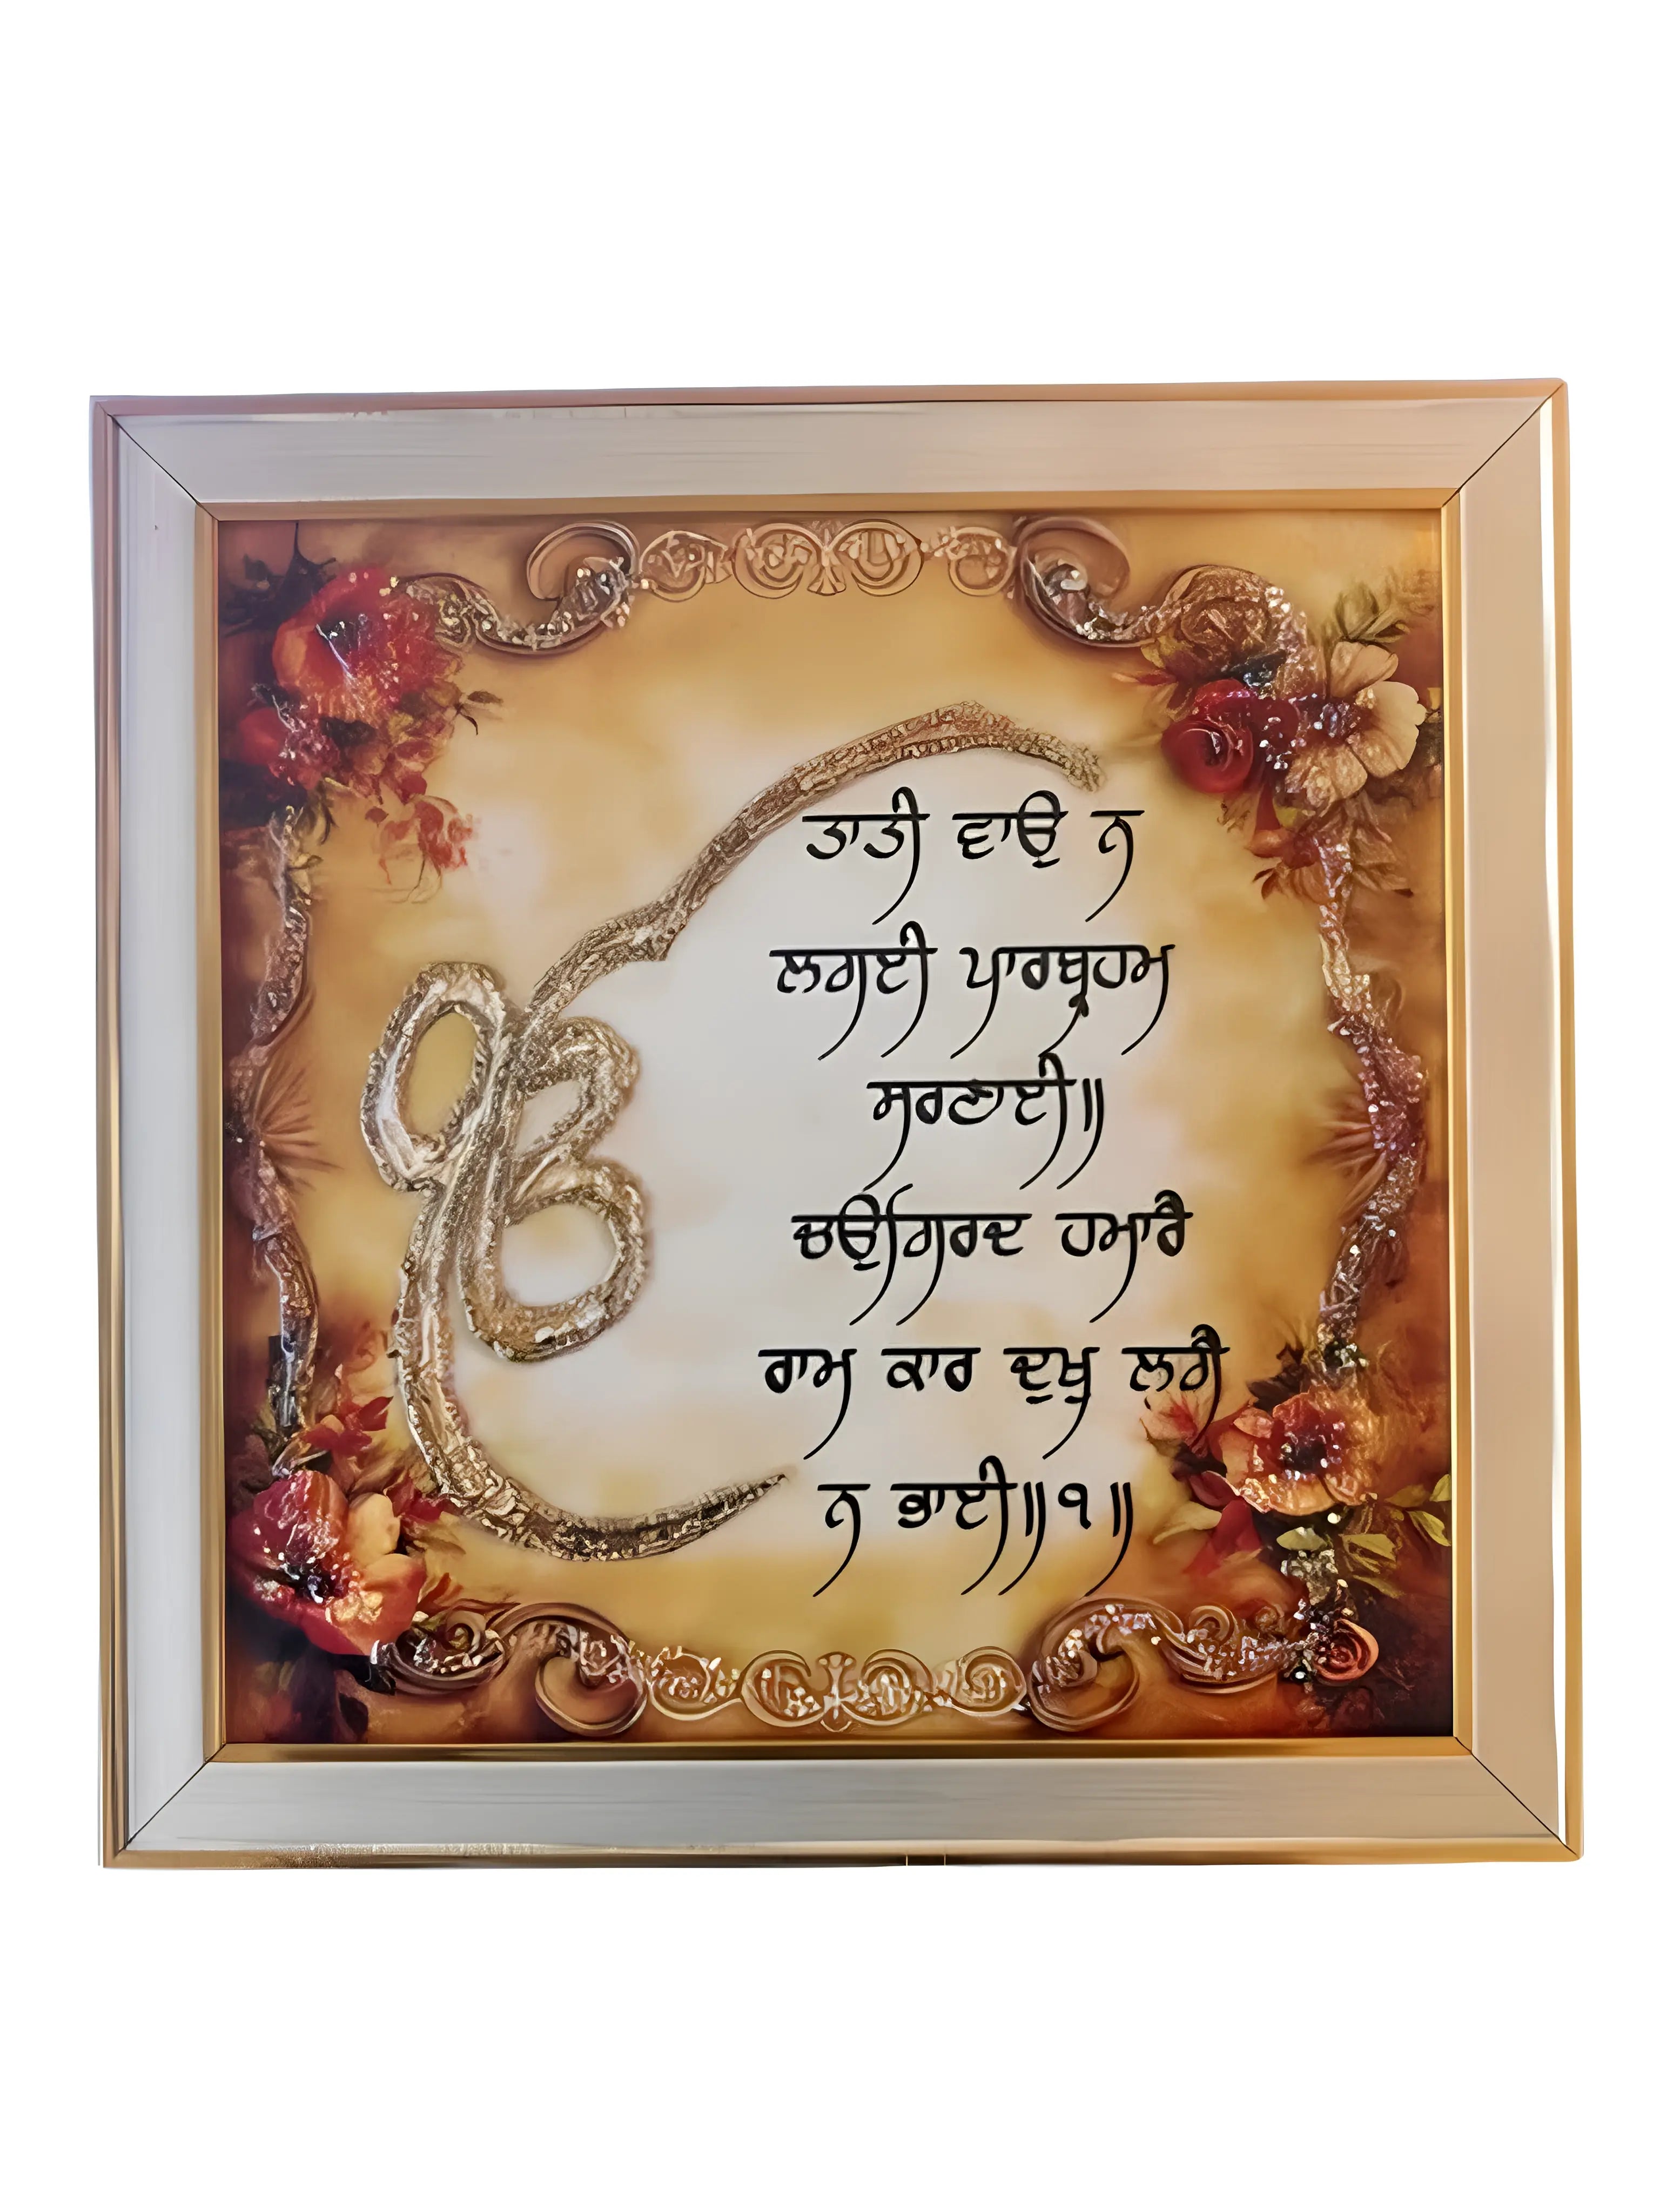 ੴ
ਤਾਤੀ ਵਾਉ ਨ
ਲਗਈ ਪਾਰਬ੍ਰਹਮ
ਸਰਣਾਈ॥
ਚਉਗਿਰਦ ਹਮਾਰੈ
ਰਾਮ ਕਾਰ ਦੁਖੁ ਲਗੈ
ਨ ਭਾਈ॥੧॥